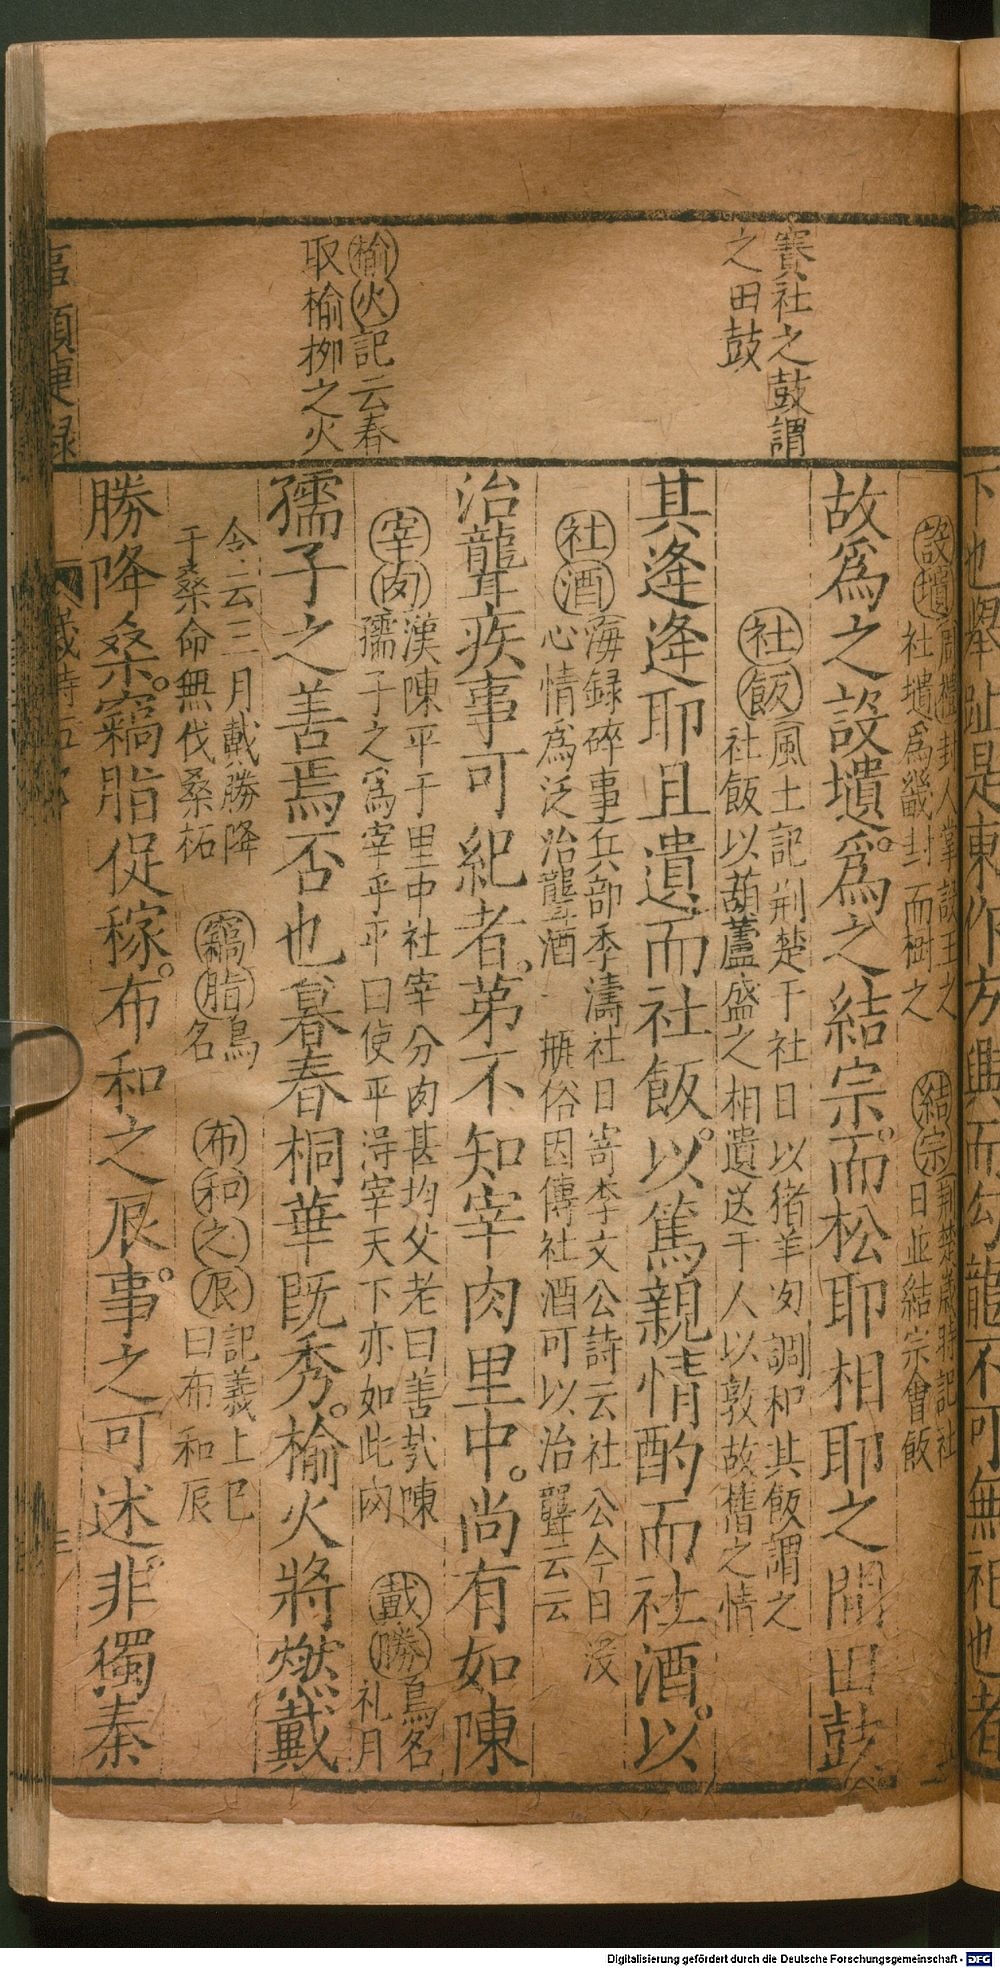 賽社之鼓謂
之田鼓
榆火記云春
取榆柳之火
設壝周禮封人掌設王之
社壝爲畿封而樹之
結宗荆楚歲時記社
日並結宗會飯
故爲之設壝。爲之結宗。而松耶相耶之間田鼓
社飯風土記荆楚于社日以猪羊肉調和其飯謂之
社飯以葫蘆盛之相遺送于人以敦故舊之情
其逄逄耶且遺而社飯。以篤親情酌而社酒。以
社酒海録碎事兵部李濤社日寄李文公詩云社公今日没
心情爲泛治聾酒一瓶俗因傳社酒可以治聾云云
治聾疾事可紀者。第不知宰肉里中。尚有如陳
宰肉漢陳平于里中社宰分肉甚均父老曰善哉陳
孺子之爲宰乎平曰使平得宰天下亦如此肉
戴勝鳥名
礼月
孺子之善焉否也暮春桐華既秀。榆火將燃戴
令云三月戴勝降
于桑命無伐桑柘
竊脂鳥
名
布和之辰記義上巳
曰布和辰
勝降桑。竊脂促稼。布和之辰。事之可述非獨秦
下也舉趾是東作方興而勾龍不可無祀也者
Digitalisierung gefördert durch die Deutsche Forschungsgemeinschaft - DFG